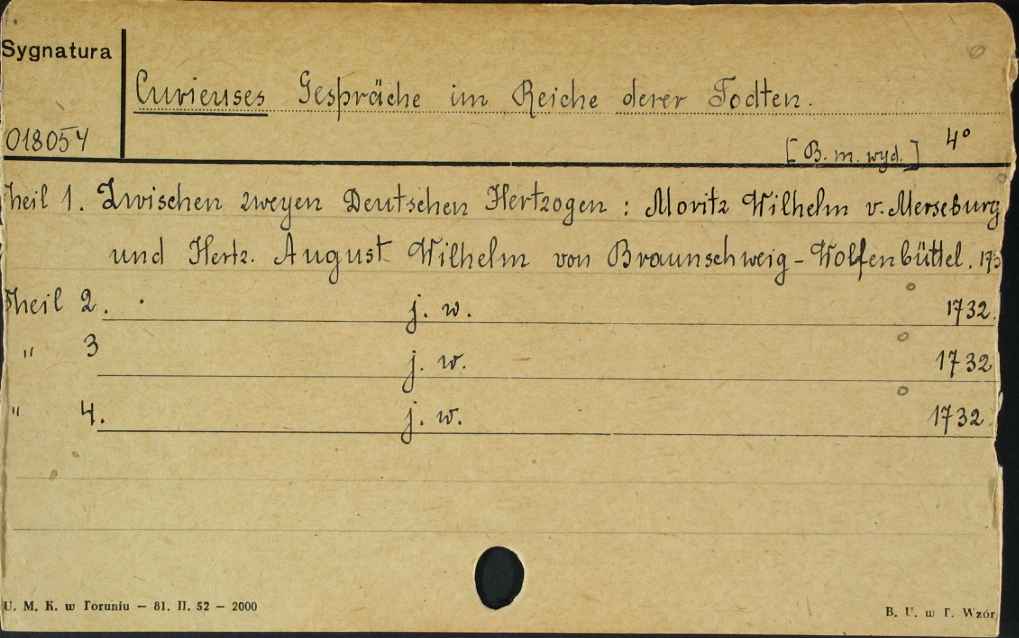 Sygnatura
Curieuses Gespräche im Reiche derer Todten.
018054
[B. m. wyd.] 4°
Theil 1. Zwischen zweyen Deutschen Hertzogen : Moritz Wilhelm v. Merseburg
und Hertz. August Wilhelm von Braunschweig - Wolfenbüttel. 173
Theil 2. j. w. 1732.
" 3 j. w. 1732
" 4. j. w. 1732
U. M. K. w Toruniu — 81. II. 52 — 2000
B. U. w T. Wzór